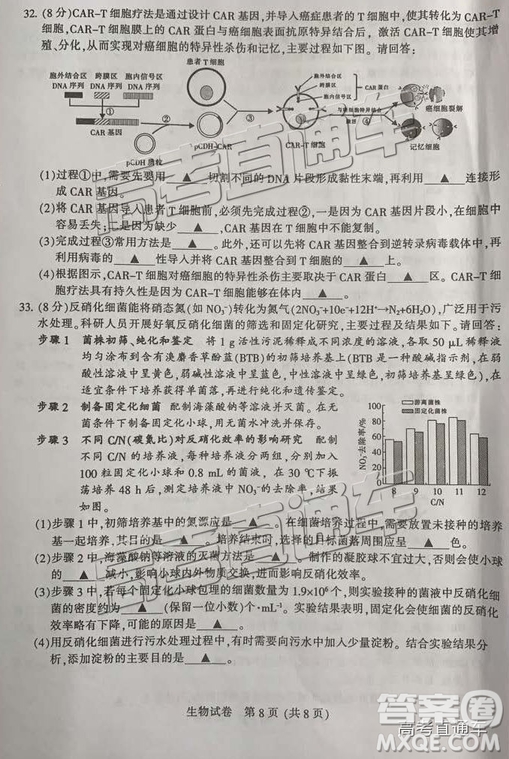 32. (8分)CAR-T细胞疗法是通过设计CAR基因,并导入癌症患者的T细胞中,使其转化为CAR-T
细胞,CAR-T细胞膜上的CAR蛋白与癌细胞表面抗原特异结合后,激活CAR-T细胞使其增
殖、分化,从而实现对癌细胞的特异性杀伤和记忆,主要过程如下图。请回答:
患者T细胞
胞外结合区 跨膜区 胞内信号区
DNA序列 DNA序列 DNA序列
①
CAR基因
②
pCDH质粒
pCDH-CAR
③
胞外结合区
跨膜区
胞内信号区
CAR蛋白
CAR-T细胞
与癌细胞特异结合
激活 ④
癌细胞裂解
记忆细胞
(1)过程①中,需要先要用 ▲ 切割不同的DNA片段形成黏性末端,再利用 ▲ 连接形
成CAR基因。
(2)将CAR基因导人患者T细胞前,必须先完成过程②,一是因为CAR基因片段小,在细胞中
容易丢失;二是因为缺少 ▲ ,CAR基因在T细胞中不能复制。
(3)完成过程③常用方法是 ▲ 。此外,还可以先将CAR基因整合到逆转录病毒载体中,再
利用病毒的 ▲ 性导入并将CAR基因整合到T细胞DNA中。
(4)根据图示,CAR-T细胞对癌细胞的特异性杀伤主要取决于CAR蛋白 ▲ 区。CAR-T细
胞疗法具有持久性是因为CAR-T细胞能够在体内 ▲ 。
33. (8分)反硝化细菌能将硝态氮(如NO₃⁻)转化为氮气(2NO₃⁻+10e⁻+12H⁺→N₂+6H₂O),广泛用于污
水处理。科研人员开展好氧反硝化细菌的筛选和固定化研究,主要过程及结果如下。请回答:
步骤1 菌株初筛、纯化和鉴定 将1g活性污泥稀释成不同浓度的溶液,各取50μL稀释液
均匀涂布到含有溴麝香草酚蓝(BTB)的初筛培养基上(BTB是一种酸碱指示剂,在弱
酸性溶液中呈黄色,弱碱性溶液中呈蓝色,中性溶液中呈绿色,初筛培养基呈绿色),在
适宜条件下培养获得单菌落,再进行纯化和遗传鉴定。
步骤2 制备固定化细菌 配制海藻酸钠等溶液并灭菌。在无
菌条件下制备固定化小球,用无菌水冲洗并保存。
步骤3 不同C/N(碳氮比)对反硝化效率的影响研究 配制
不同C/N的培养液,每种培养液分两组,分别加入
100粒固定化小球和0.8mL的菌液,在30℃下振
荡培养48h后,测定培养液中NO₃⁻的去除率,结果
如图。
NO₃⁻去除率/%
100
80
60
40
20
0
游离菌株
固定化菌株
8 9 10 11 12
C/N
(1)步骤1中,初筛培养基中的氮源应是 ▲ 。在细菌培养过程中,需要放置未接种的培养
基一起培养,其目的是 ▲ 。培养结束,选择的目标菌落周围应呈 ▲ 色。
(2)步骤2中,海藻酸钠等溶液的灭菌方法是 ▲ 。制作的凝胶球不宜过大,否则会使小球的
▲ 减小,影响小球内外物质交换,进而影响反硝化效率。
(3)步骤3中,若每个固定化小球包埋的细菌数量为1.9×10⁶个,则实验接种的菌液中反硝化细
菌的密度约为 ▲ (保留一位小数)个·mL⁻¹。实验结果表明,固定化会使细菌的反硝化
效率略有下降,可能的原因是 ▲ 。
(4)用反硝化细菌进行污水处理过程中,有时需要向污水中加入少量淀粉。结合实验结果分
析,添加淀粉的主要目的是 ▲ 。
生物试卷 第8页(共8页)
高考直通车
答案圈
高考直通车
MXQE.COM